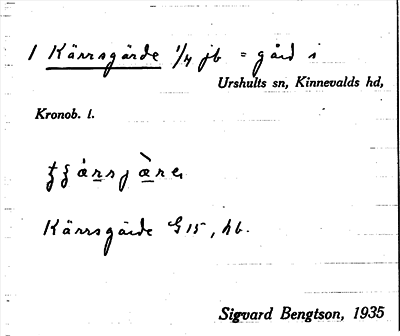 1 Kärrsgärde 1/4 jb = gård i
Urshults sn, Kinnevalds hd,
Kronob. l.
Kärrsgärde G 15, hb.
Sigvard Bengtson, 1935